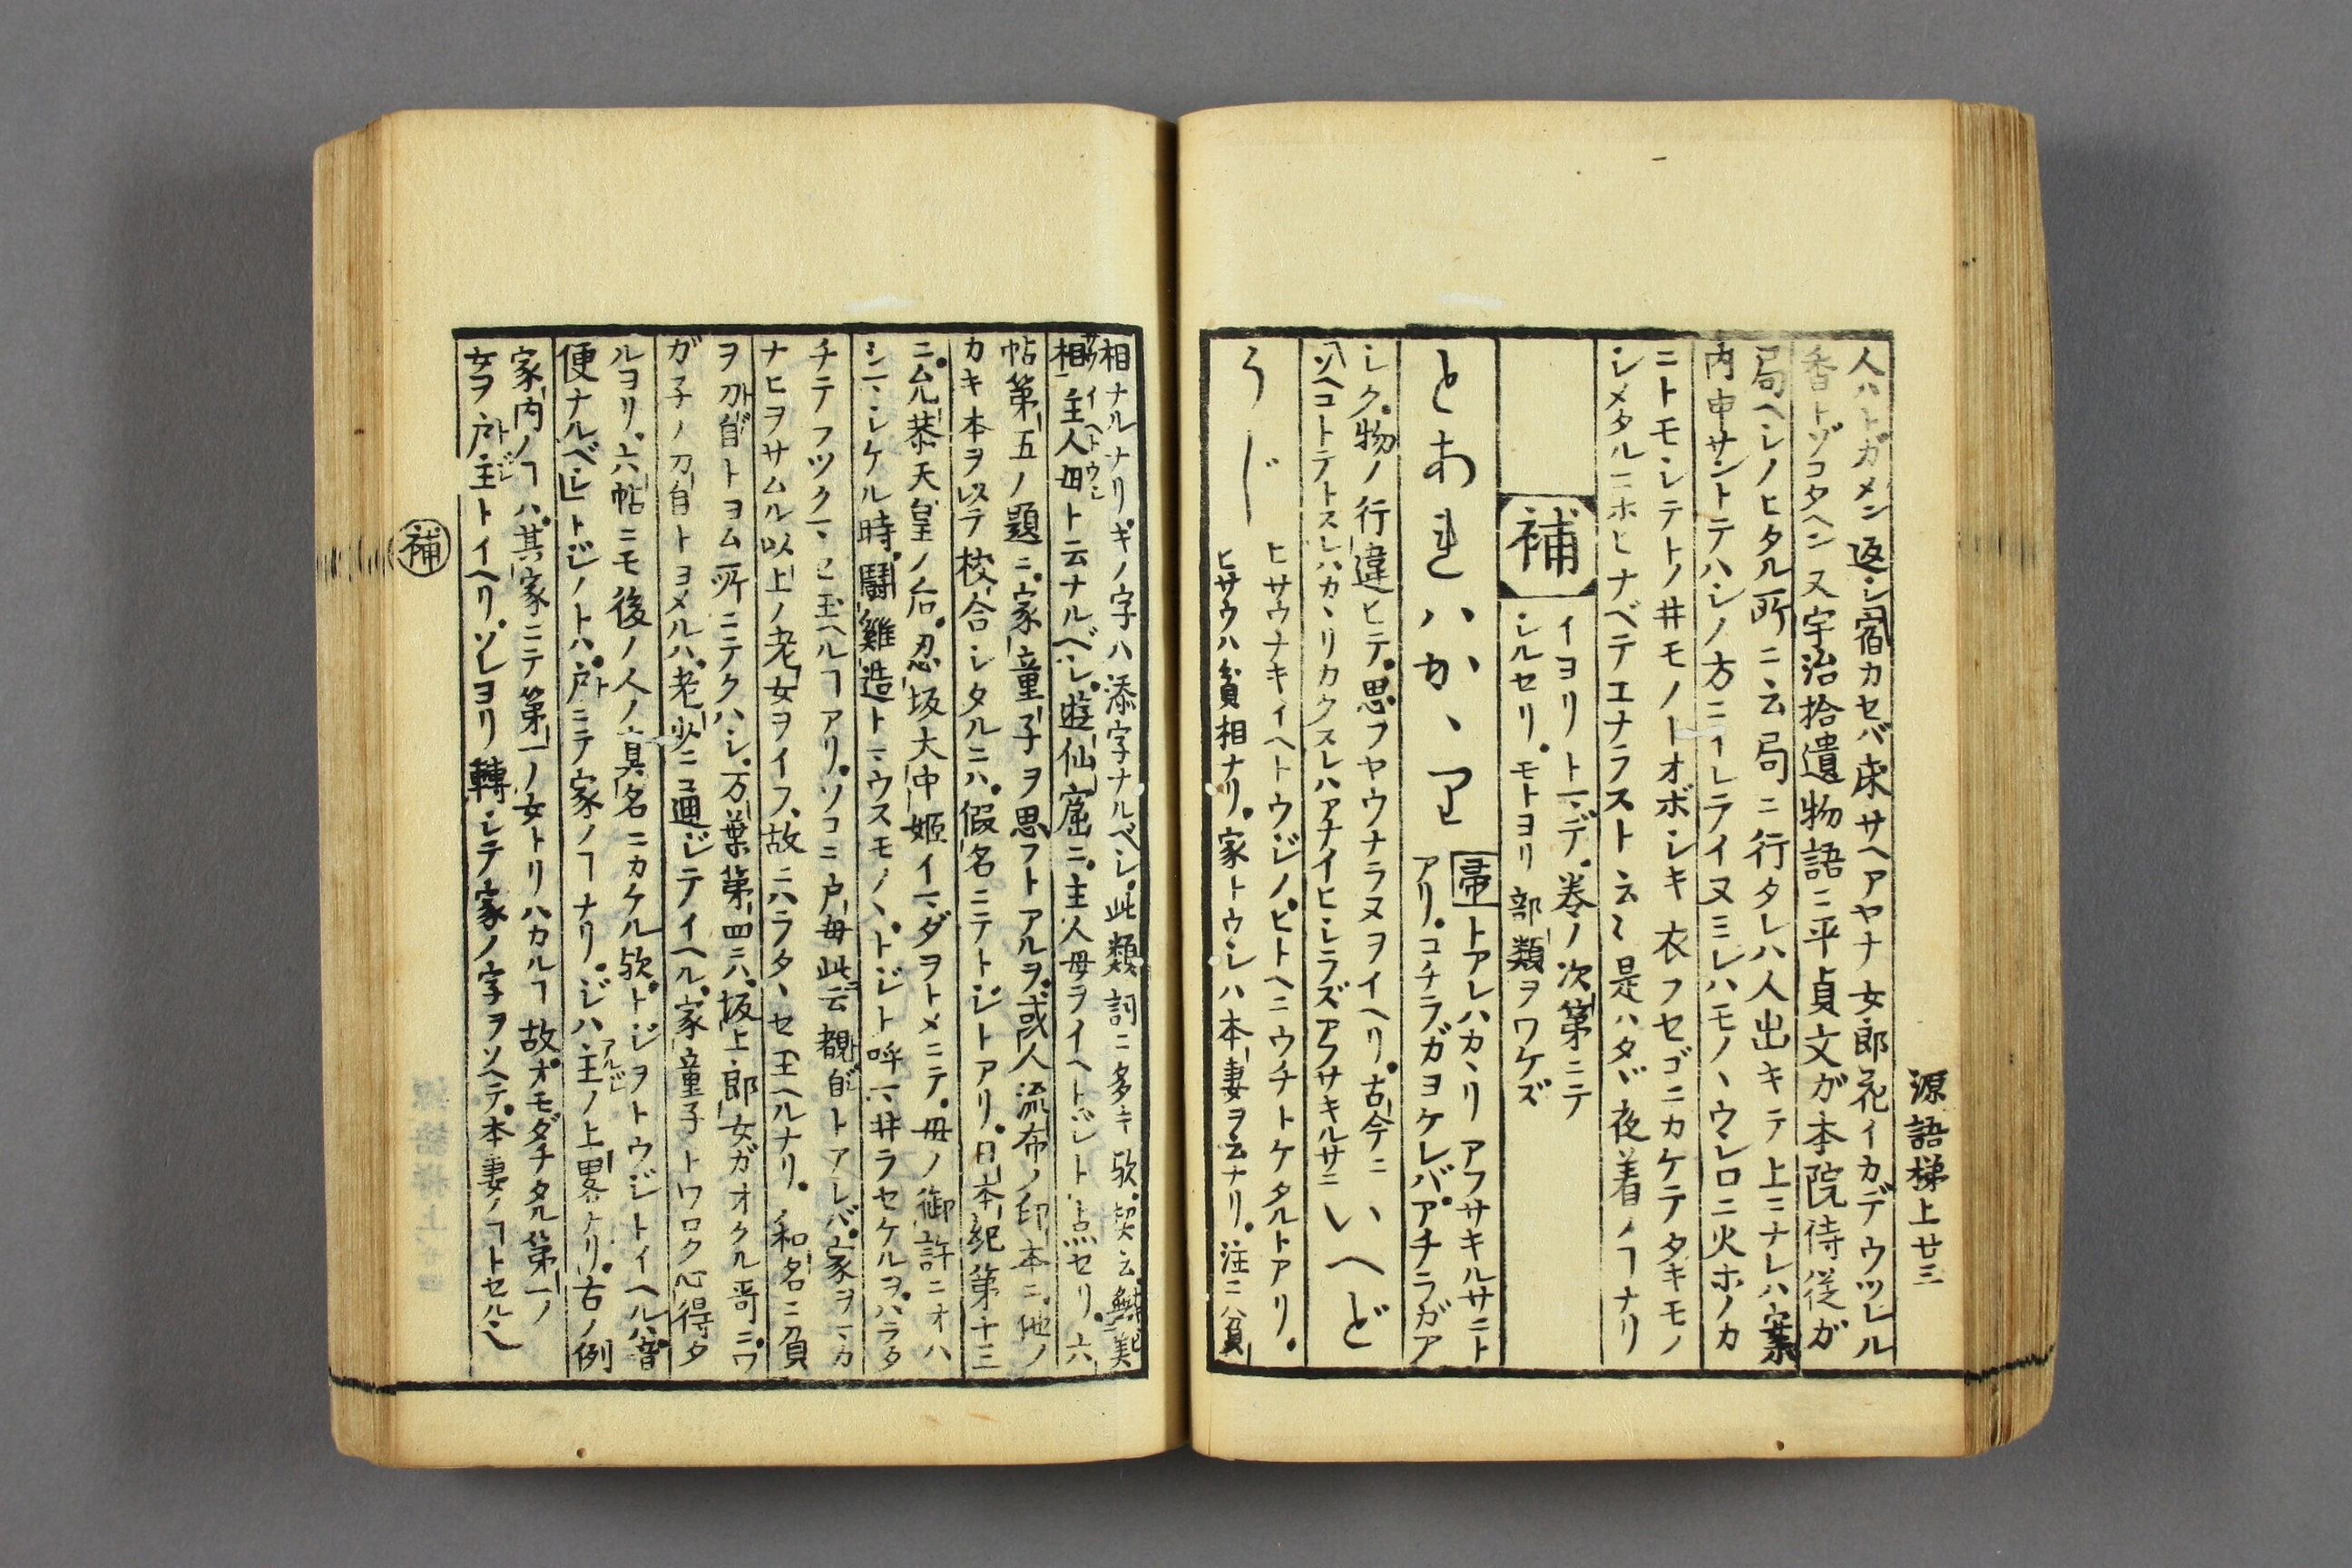 源語梯上廿三
人ハトガメン返シ宿カセバ床サヘアヤナ女郎花イカデウツレル
香トゾコタヘン又宇治拾遺物語ニ平貞文ガ本院侍従ガ
局ヘシノヒタル所ニ云局ニ行タレハ人出キテ上ミナレハ案
内申サントテハシノ方ニイレテイヌミレハモノヽウシロニ火ホノカ
ニトモシテトノ井モノトオボシキ衣フセゴニカケテタキモノ
シメタルニホヒナベテエナラスト云〻是ハタヾ夜着ノヿナリ
補
イヨリトマデ。巻ノ次第ニテ
シルセリ。モトヨリ部類ヲワケズ
とあれハかヽり
帚トアレハカヽリアフサキルサニト
アリ。コチラガヨケレバ。アチラガア
シク。物ノ行違ヒテ。思フヤウナラヌヲイヘリ。古今ニ
ソヘコトテトスレハカヽリカクスレハアナイヒシラズアフサキルサニ
いへど
うじ
ヒサウナキイヘトウジノ。ヒトヘニウチトケタルトアリ。
ヒサウハ貧相ナリ。家トウシハ本妻ヲ云ナリ。注ニハ貧
相ナルナリ。キノ字ハ添字ナルベシ。此類詞ニ多キ欤。契云。
相。主人母ト云ナルベシ。遊仙窟ニ。主人母ヲイヘトジト点セリ。六
帖第五ノ題ニ。家童子ヲ思フトアルヲ。或人流布ノ印本ニ。他ノ
カキ本ヲ以テ校合シタルニハ。假名ニテトジトアリ。日本紀第十三
ニ。允恭天皇ノ后。忍坂大中姫イマダヲトメニテ。母ノ御許ニオハ
シマシケル時。闘雞造トマウスモノヽ。トジト呼マ井ラセケルヲ。ハラタ
チテフツクマヒ玉ヘルヿアリ。ソコニ戸母此云覩自トアレバ。家ヲマカ
ナヒヲサムル以上ノ老女ヲイフ。故ニハラタヽセ玉ヘルナリ。和名ニ負
ヲ刀自トヨム所ニテクハシ。万葉第四ニハ。坂上郎女ガオクル哥ニ。ワ
ガ子ノ刀自トヨメルハ。老少ニ通ジテイヘル。家童子トワロク心得タ
ルヨリ。六帖ニモ後ノ人ノ真名ニカケル欤。トジヲトウジトイヘルハ。音
便ナルベシ」トジノトハ。戸ニテ家ノヿナリ。ジハ主ノ上畧ナリ。古ノ例
家内ノヿハ。其家ニテ第一ノ女トリハカルヿ故。オモダチタル第一ノ
女ヲ戸主トイヘリ。ソレヨリ轉シテ家ノ字ヲソヘテ。本妻ノヿトセル也
補